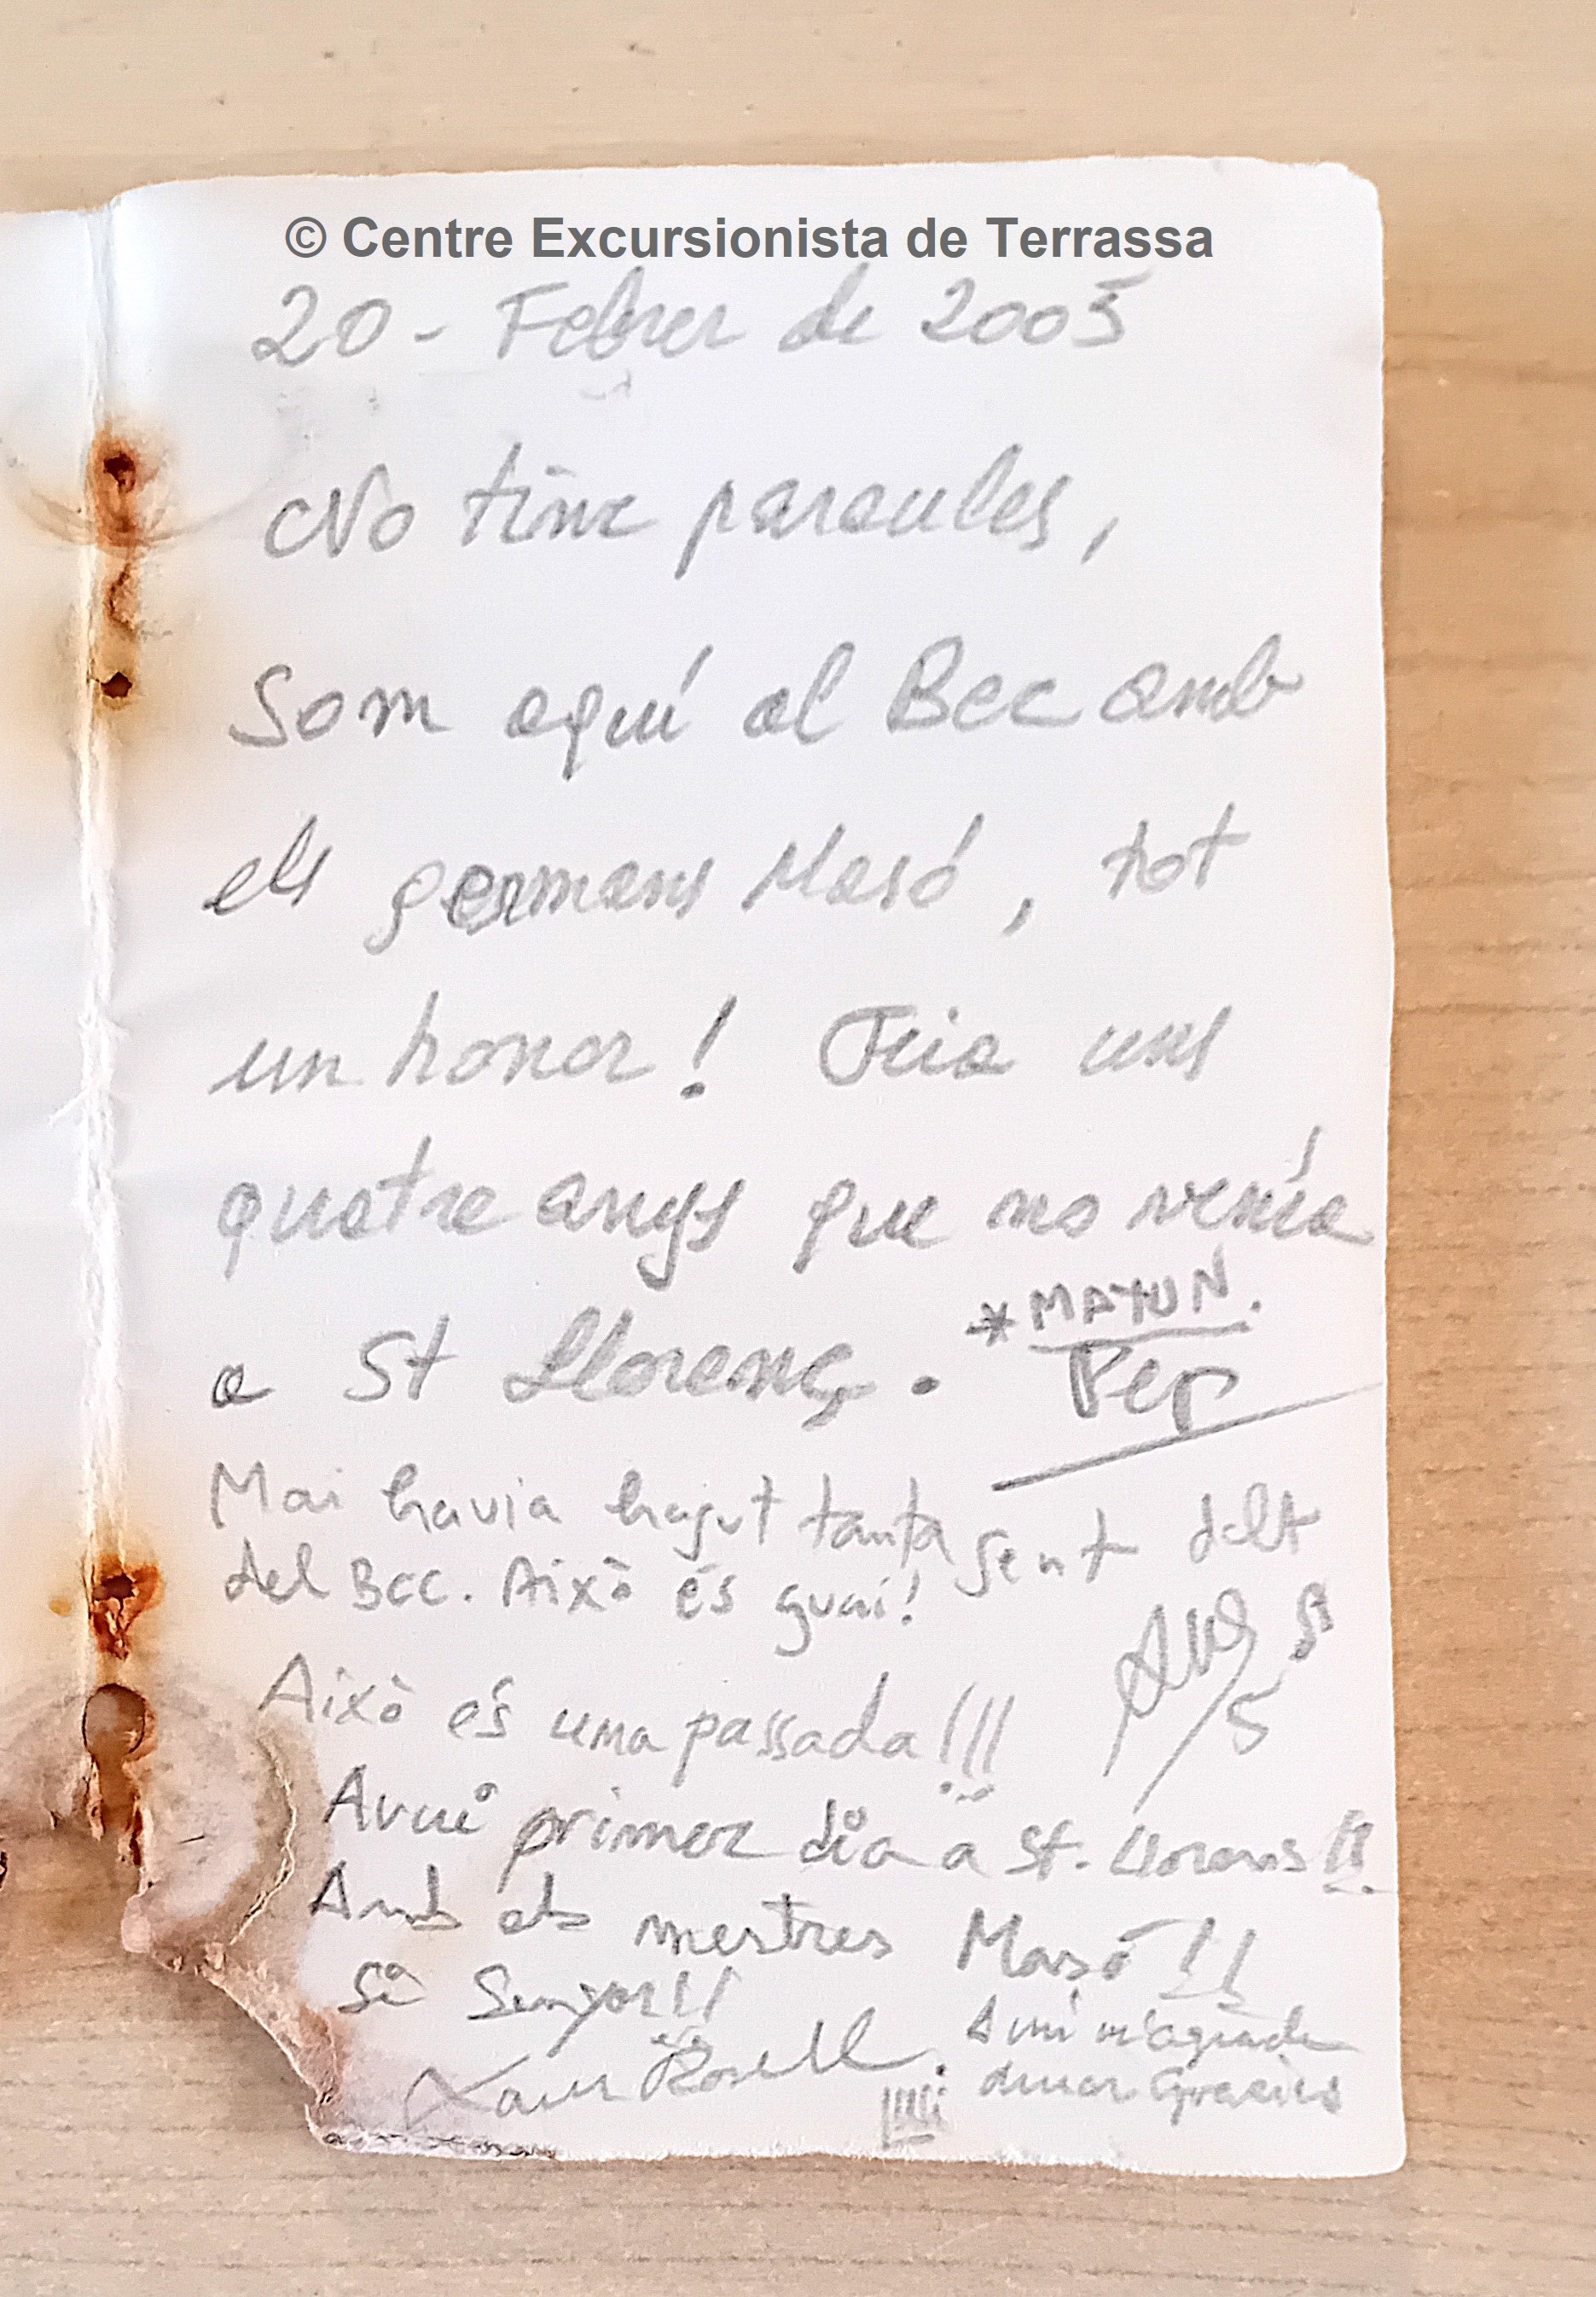 © Centre Excursionista de Terrassa
20 - Febrer de 2005
No tinc paraules,
Som aquí al Bec amb
els germans Masó, tot
un honor! Feia uns
quatre anys que no venía
a St Llorenç.
* MATUN.
Pep
Mai havia hagut tanta gent dalt
del Bec. Això és guai!
Això és una passada!!!
Avui primer dia a St. Llorens!!
Amb els mestres Masó!!
Si Senyor!!
Xavier Rosell.
A mi m'agrada
Gracies